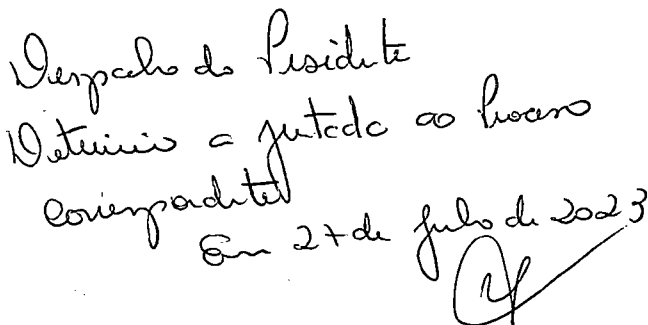 Despacho do Presidente
Determino a juntada ao Processo
correspondente
Em 27 de julho de 2023